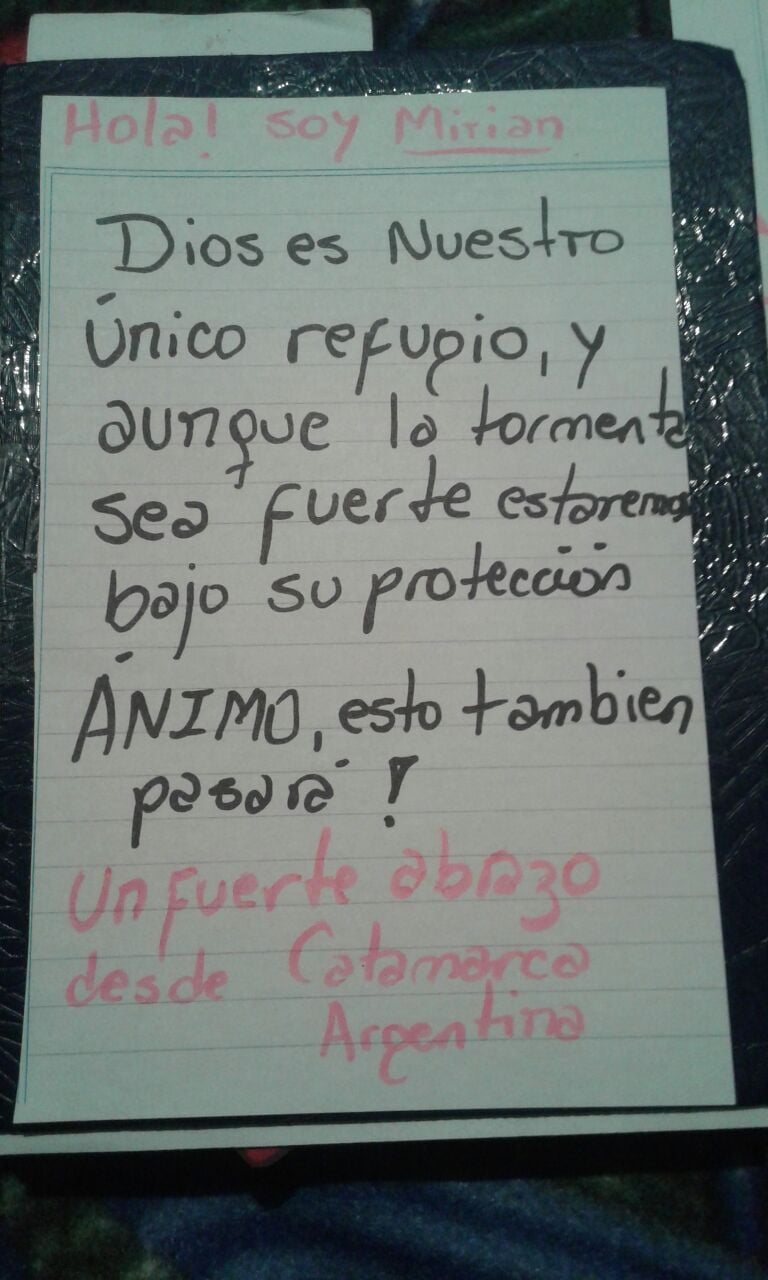 Hola! soy Mirian
Dios es Nuestro
único refugio, y
aunque la tormenta
sea fuerte estaremos
bajo su protección
ÁNIMO, esto tambien
pasará !
Un fuerte abrazo
desde Catamarca
Argentina